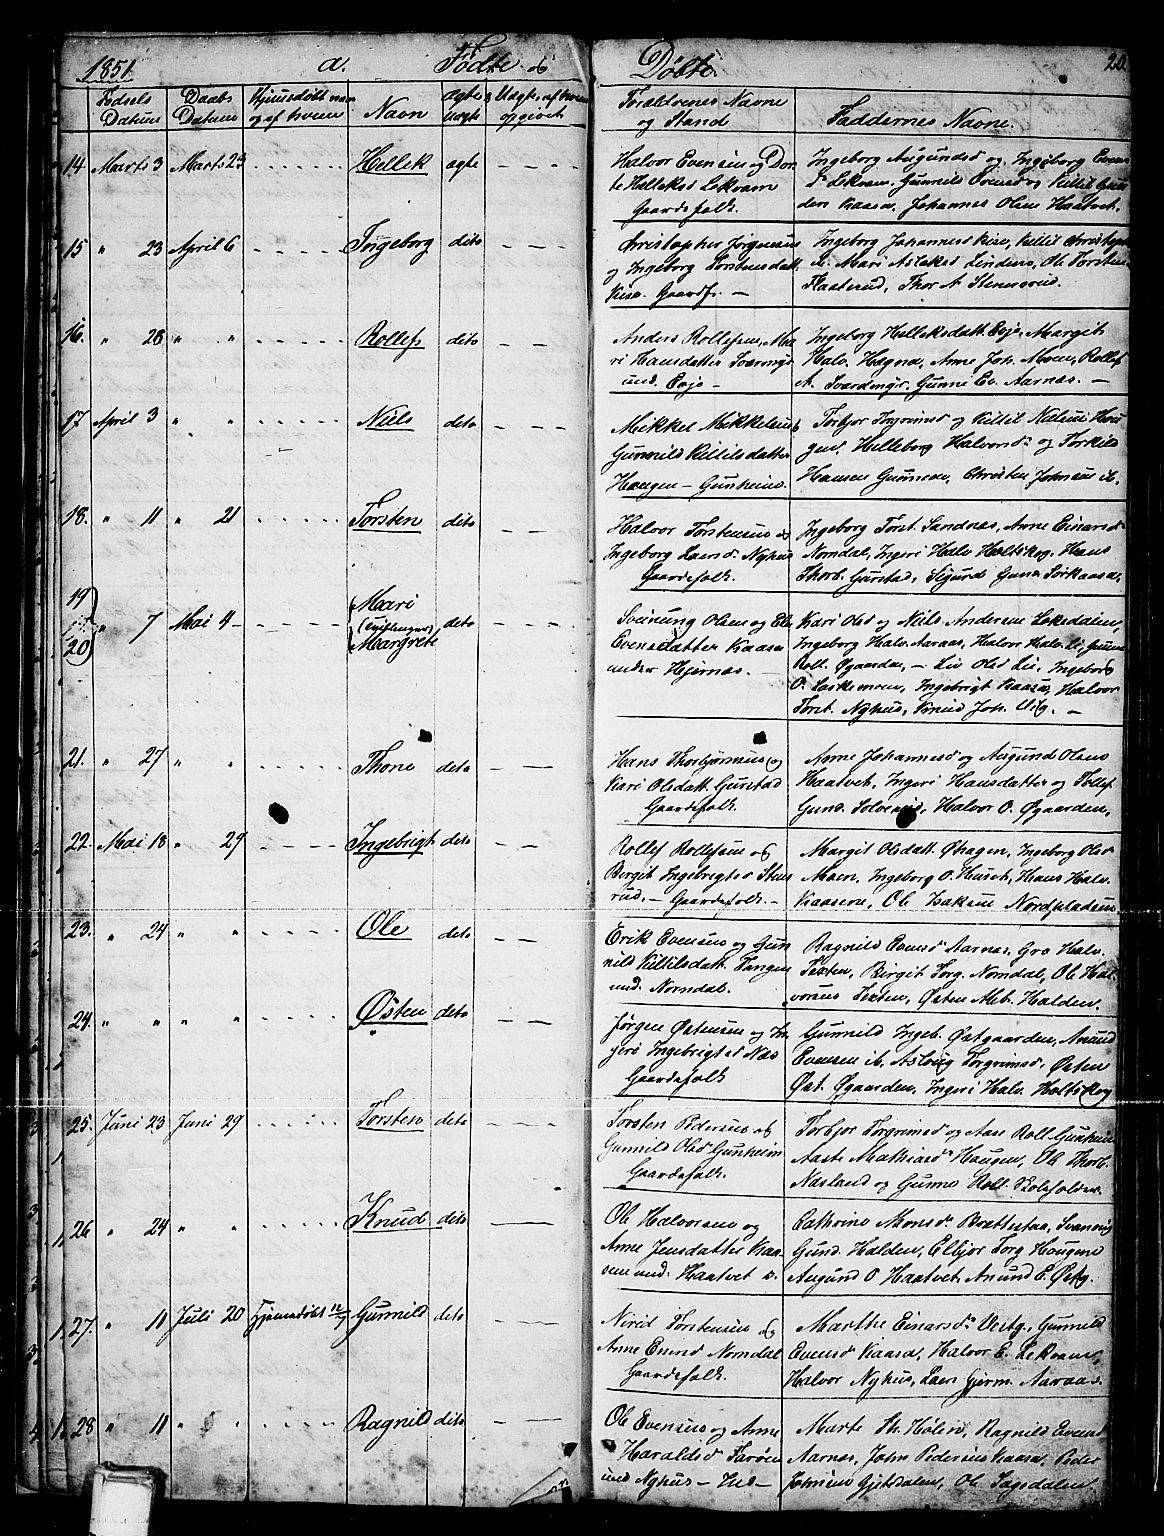 1851 a. Fødte og Døbte. 20.
Fødsels Datum Daabs Datum Hjemmedøbt naar og af hvem Navn ægte & uægte Uægte, af hvem opgivet Forældrenes Navne og Stand Faddernes Navne.
14 Marts 3 Marts 23 Hellek ægte
Halvor Evensen og Dor-
te Helleksd Lekvam
Gaardsfolk.
Ingeborg Augundsd og Ingeborg Evens
dr Lekvam. Gunnild Evensd og Kittil
den Kaasa. Johannes Olsen Haatvet.
15 " 23 April 6 Ingeborg dito
Christopher Jørgensen
og Ingeborg Torstensdatt.
Kise. Gaardf. —
Ingeborg Johannesd Kise, Kittil Christoph
Mari Aslaksd Lindem, Ole Torsten
Flaaterud, Thor A Stenersrud.
16. " 28 " " Rollef dito
Anders Rollefsen, Ma
ri Hansdatter Sværmyr
und. Evje —
Ingeborg Helleksdatt. Evje, Margit
Halv. Hægna, Anne Joh. Moen, Rollef
A. Sværdmyr. Gunni Ev. Aarnæs. —
17 April 3 " " Niels dito
Mikkel Mikkelsen &
Gunnild Kittilsdatter
Haugen — Gunheim.
Torbjør Torgrimsd og Kittil Nielsen Hou
gen, Helleborg Halvorsdr og Torkild
Hansen Gunnem, Christen Johnsen ib.
18. " 11 " 21 Torsten dito
Halvor Torstensen og
Ingeborg Larsd. Nyhus
Gaardsfolk.
Ingeborg Torst. Sandnæs, Anne Einarsd
Norndal, Ingeri Halv Holtskog, Hans
Thorb. Gurstad, Sigurd Gunn Sørkaasa.
19 20 " 7 Mai 4 Mari (tvillinger) Margrete dito
Sveinung Olsen og El
Evensdatter Kaasa
under Hjernæs. —
Kari Olsd og Niels Andersen Loksdalen,
Ingeborg Halv. Aaraas, Halvor Halv. Li,
Roll. Øgaarden, — Liv Olsd Lie, Ingeborg
O. Ingebrigt Kaasa, Halvor
Torst. Nyhus, Knud Joh. —
21. " 27 " " Thone dito
Hans Thorbjørnsen og
Kari Olsdatt. Gurstad
Gaardsfolk.
Anne Johannesd og Augund Olsen
Haatvet, Ingeri Hansdatter og Tollef
Gund. Halvor O. Øgaarden.
22. Mai 18 " 29 Ingebrigt dito
Rollef Rollefsen og
Birgit Ingebrigtsd Stens
rud. — Gaardsfolk. —
Margit Olsdatt. Øhagen, Ingeborg Olsd
Moen, Ingeborg O. Huset, Hans Halv.
Kaasene, Ole Isaksen Nordpladsen.
23. " 24 " " Ole dito
Erik Evensen og Gun
nild Kittilsdatt. Tangen
und. Norndal.
Ragnild Evensd Aarnæs, Gro Halv.
Texten, Birgit Torg. Norndal, Ole Hal
vorsen Texten, Østen Halden.
24. " " " " Østen dito
Jørgen Østensen og In
gerø Ingebrigtsd Næs
Gaardsfolk
Gunnild Ingeb. Østgaarden, Anund
Evensen ib, Aslaug Torgrimsd, Østen
Øst. Øgaarden, Ingeri Halv. Holtskog
25. Juni 23 Juni 29 Torsten dito
Torsten Pedersen og
Gunnild Olsd Gunheim
Gaardsfolk.
Torbjør Torgrimsd og Aase Roll Gunheim
Aaste Mathiasdr Haugen, Ole Thorb.
Næsland og Gunne Roll.
26 " 24 " " Knud dito
Ole Halvorsen og
Anne Jensdatter Kaa-
sene und. Haatvet v.
Cathrine Monsdr Brattestaa, Svanaug
Gund. Halden, Elbjør Torg Hougene
Augund O Haatvet, Anund E. Østg.
27. " 11 Juli 20 Hjemmedøbt 12/7 Gunnild dito
Nirid Torstensen og
Anne Norndal
Gaardsfolk.
Marthe Einarsdr Vestg, Gunnild
Evensd Kaasa, Halvor E. Lekvam,
Halvor Nyhus, Lars Gjerm. Aaraas.
28 " 11 " " Ragnild dito
Ole Evensen og Anne
Haraldsd Tarøen
und Nyhus — Ind —
Marte St. Hølen, Ragnild Evensd
Aarnæs, John Pedersen Kaasa, Peder
Johnsen Gjetsdalen, Ole Sagsdalen.